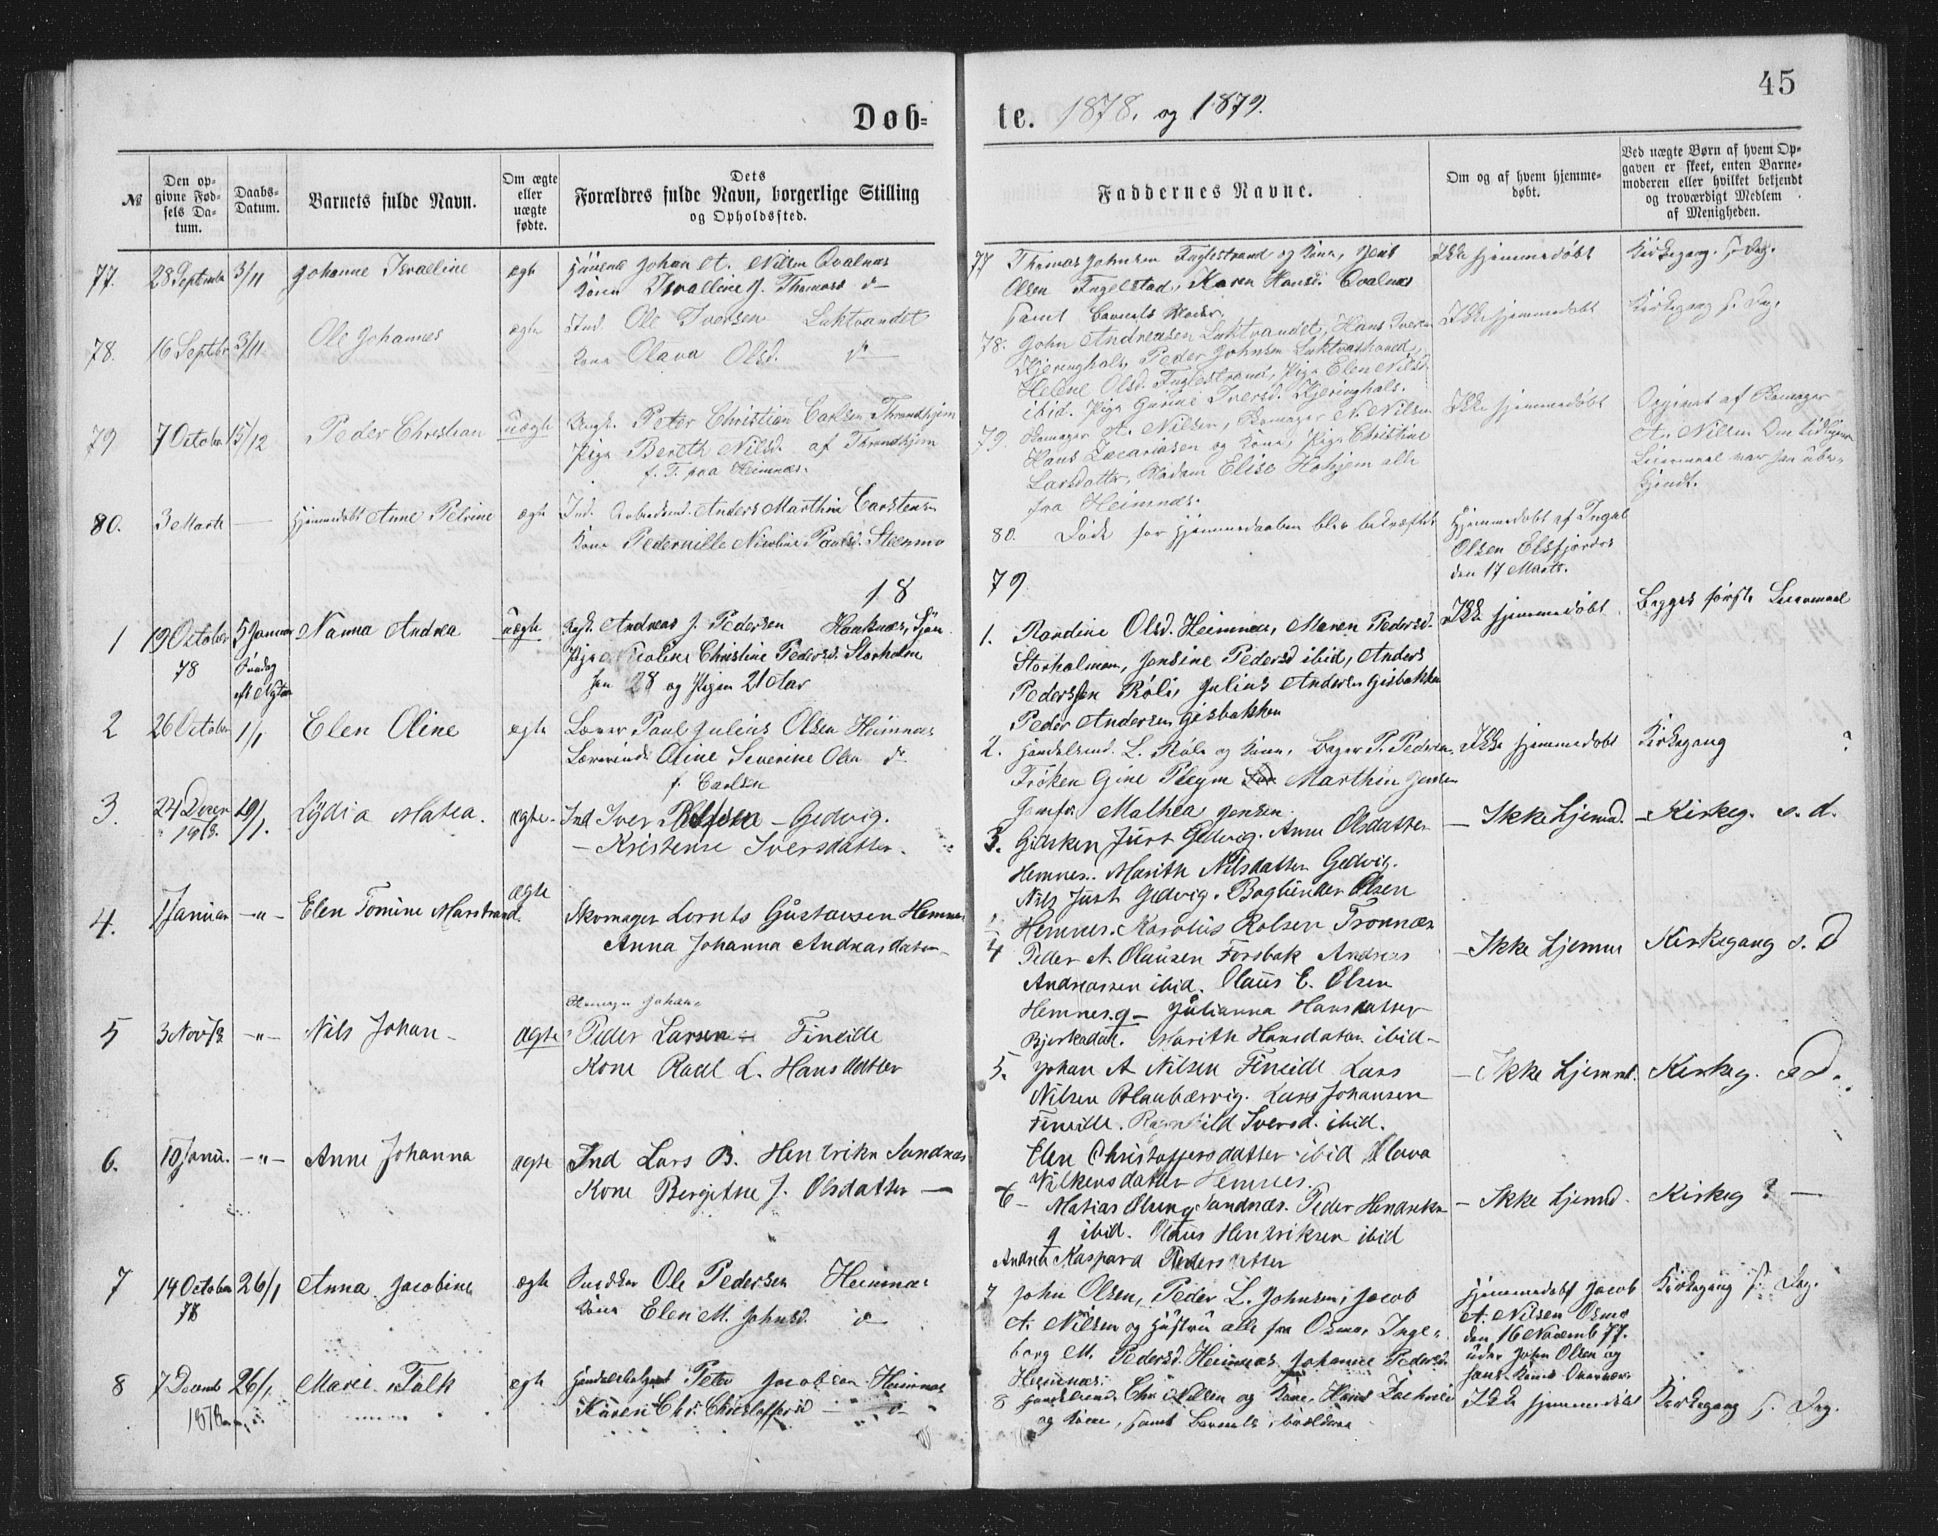 45
Døb-
te. 1878. og 1879.
№
Den op-
givne Fød-
sels Da-
tum.
Daabs-
Datum.
Barnets fulde Navn.
Om ægte
eller
uægte
fødte.
Dets
Forældres fulde Navn, borgerlige Stilling
og Opholdssted.
Faddernes Navne.
Om og af hvem hjemme-
døbt.
Ved uægte Børn af hvem Op-
gaven er skeet, enten Barne-
moderen eller hvilket bekjendt
og troværdigt Medlem
af Menigheden.
77. 28 Septembr 3/11 Johanne Israeline ægte Johan A. Nilsen Qvalnes
Kone Israeline J. Thomasd do
77 Thomas Johnsen Inglestrand og Kone, Jens
Olsen Fugelstad, Karen Hansd. Qvalnes
samt Barnets Moder.
Ikke hjemmedøbt
Kirkegang s. Dag.
78. 16 Septbr 3/11 Ole Johannes ægte Ind. Ole Iversen Luktvandet
Kone Olava Olsd. do
78. John Andreasen Luktvandet, Hans Iversen
Kjeringhals, Peder Johnsen Luktvashoved,
Helene Olsd. Inglestrand, Pige Elen Nilsd.
ibid. Pige Gurine Iversd. Kjeringhals.
Ikke hjemmedøbt
Kirkegang s. Dag.
79 7 October 15/12 Peder Christian uægte Ungk. Peter Christian Carlsen Throndhjem
Pige Bereth Nilsd. af Throndhjem
f. T. fra Heimnæs.
79. Skomager A. Nilsen, Skomager N. Nilsen
Hans Zacariasen og Kone, Pige Christine
Larsdatter, Madam Elise Hatjem alle
fra Heimnæs.
Ikke hjemmedøbt
Opgivet af Skomager
A. Nilsen Om tidligere
Leiermaal var han ube-
kjendt.
80. 3 Marts — Hjemmedøbt Anne Petrine ægte Ind. Arbeidsmd. Anders Marthin Carstensen
Kone Pedernille Nicoline Paulsd. Steenmo
80. Døde før Hjemmedaaben blev bekræftet
Hjemmedøbt af Ingeb.
Olsen Elsfjorden
den 17 Marts.
18
79
1 19 October 5 Januar Nanna Andrea uægte Ungk. Andreas J. Pedersen Hauknæs,
78 Søndag Pige Nicoline Christine Pedersd. Storholm
eft. Nytaar han 28 og Pigen 21 Aar
1. Randine Olsd. Heimnæs, Maren Pedersd.
Storholmen, Jensine Pedersd ibid, Anders
Pedersen Røli, Julius Andersen Gisbakken
Peder Andersen Gisbakken
Ikke hjemmedøbt
Begges første Leiermaal
2 26 October 1/1 Elen Oline ægte Lærer Paul Julius Olsen Heimnæs
Lærerinde Oline Severine Olsen do.
f. Carlsen
2. Handelsmd. L. Røli og Kone, Bager P. Pedersen,
Frøken Gine Pleym Marthin Jensen
Jomfr. Mathea Jensen
Ikke hjemmedøbt
Kirkegang ?
3. 24 Decem 19/1. Lydia Matea. ægte. Ind Iver Gedvig.
– Kristense Iversdatter.
3. Gidsken Just Gedvig. Anne Olsdatter
Hemnes. Marith Nilsdatter Gedvig.
Nils Just Gedvig. Bogbinder Olsen
Hemnes. Karolius Rolsen Tronnæs
– Ikke hjemd. – Kirkeg. s. d.
4. 1 Januar –"– Elen Tomine Marstrand. ægte Skomager Lornts Gustavsen Hemnes
Anna Johanna Andreasdatter –
4 Peder A Olausen Forsbak Andreas
Andreassen ibid. Olaus E. Olsen
Hemnes. Julianna Hansdatter
Bjerkadal. Marith Hansdatter ibid –
– Ikke hjemme Kirkegang s. D
5 3 Nov 78 –"– Nils Johan – ægte Johan
Peder Larsen Fineide
Kone Rael L. Hansdatter
5. Johan A Nilsen Fineide Lars
Nilsen Blaabærvig. Lars Johansen
Fineide. Ragnhild Iversd. ibid.
Elen Christoffersdatter ibid Olava
Vilkensdatter Hemnes.
– Ikke hjemmd. Kirkeg. s D.
6. 10 Janu. –"– Anne Johanna ægte Ind Lars B. Henriksn Sandnæs
Kone Bergitne J. Olsdatter —
6 – Matias Olsen Sandnæs. Peder Henriksn
ibid. Klaus Henriksen ibid
Andrea Kaspara Pedersdatter
– Ikke hjemd. Kirkeg ? —
7 14 October 26/1 Anna Jacobine ægte Snedker Ole Pedersen Heimnæs
78 Kone Elen M. Johnsd. do
7 John Olsen, Peder L. Johnsen, Jacob
A. Nilsen og Hustru alle fra Osmo, Inge-
borg M. Pedersd. Heimnæs Johanne Pedersd.
Heimnæs.
Hjemmedøbt Jacob
A. Nilsen Osmo
den 16 Novemb 77.
John Olsen og
hans Kone
Kirkegang s. Dag.
8 7 Decemb 26/1 Marie Falk ægte Handelsbetjent Peter Jacobsen Heimnæs
1878 Karen Chr. Christoffersd – do –
8 Handelsmd. Chr. Nilsen og Kone, Hans Zachrias
og Kone, samt Barnets Forældre
Ikke hjemmedøbt Kirkegang s. Dag.